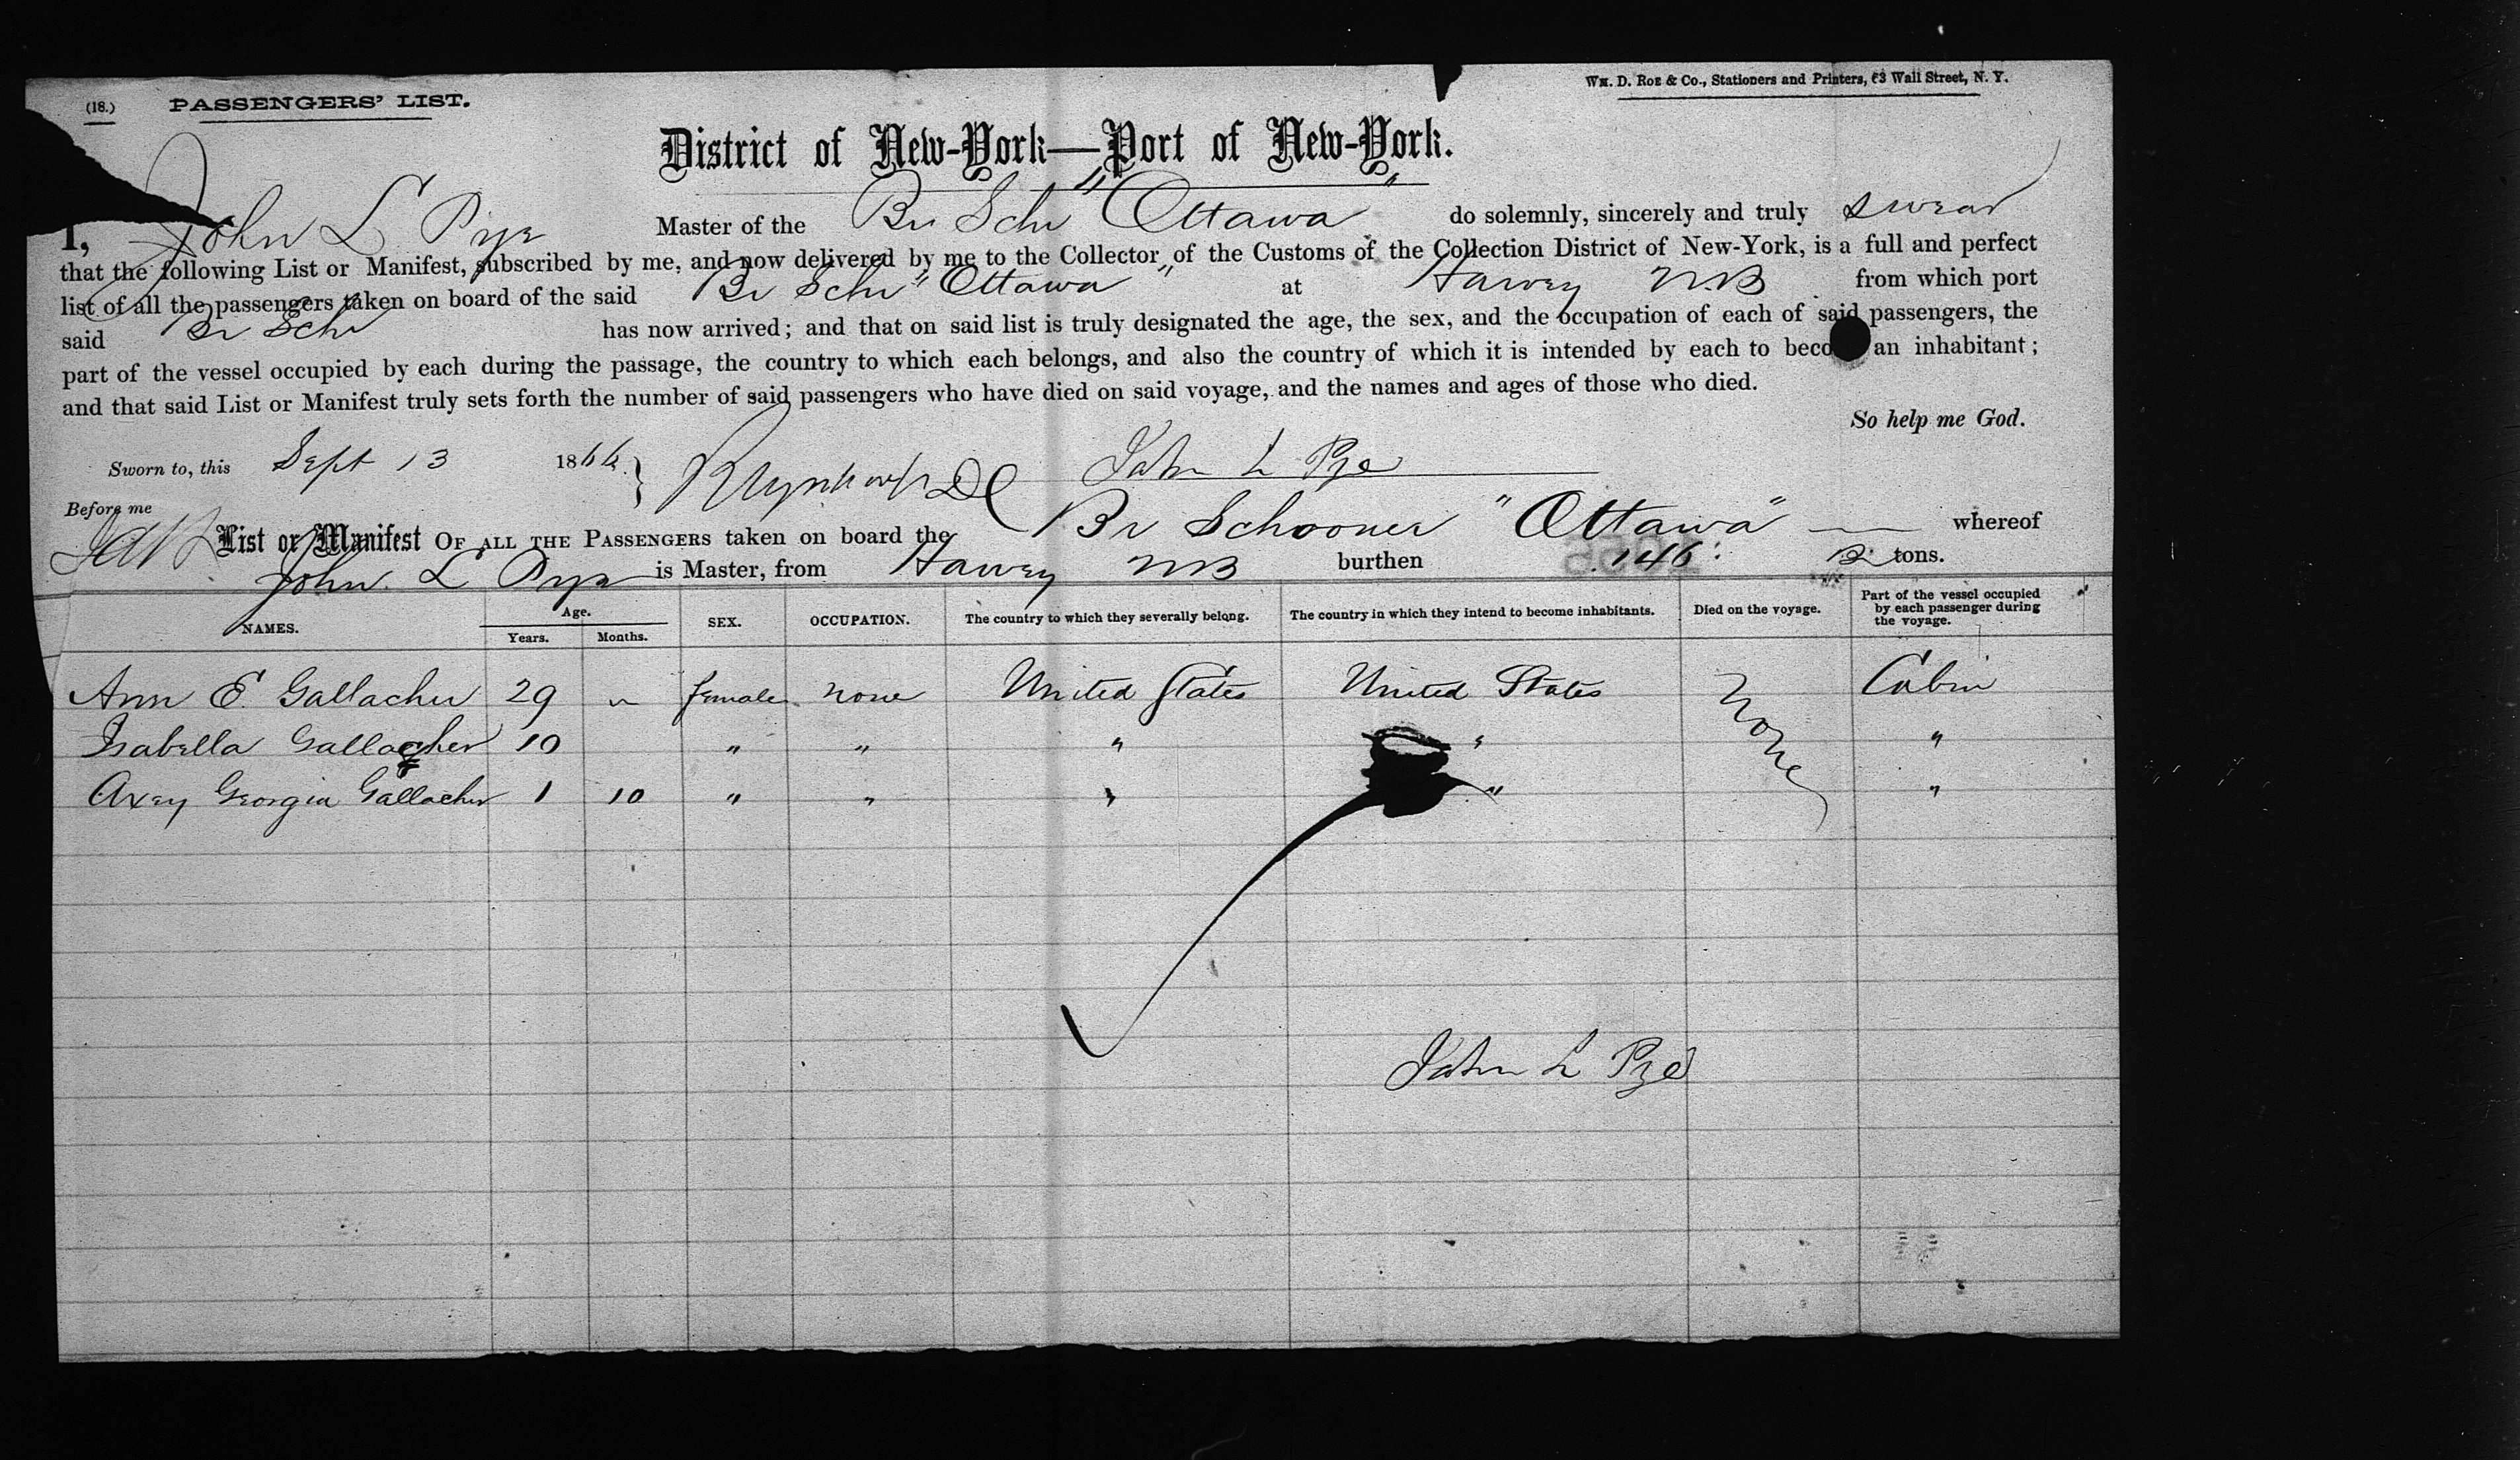 (18.) PASSENGERS' LIST. Wm. D. Roe & Co., Stationers and Printers, 63 Wall Street, N. Y.
District of New-York—Port of New-York.
I, John L Pye Master of the Br Schr "Ottawa" do solemnly, sincerely and truly swear
that the following List or Manifest, subscribed by me, and now delivered by me to the Collector of the Customs of the Collection District of New-York, is a full and perfect
list of all the passengers taken on board of the said Br Schr "Ottawa" at Harvey N.B from which port
said Br Schr has now arrived; and that on said list is truly designated the age, the sex, and the occupation of each of said passengers, the
part of the vessel occupied by each during the passage, the country to which each belongs, and also the country of which it is intended by each to beco an inhabitant;
and that said List or Manifest truly sets forth the number of said passengers who have died on said voyage, and the names and ages of those who died.
So help me God.
Sworn to, this Sept 13 1866. John L Pye
Before me
List or Manifest OF ALL THE PASSENGERS taken on board the Br Schooner "Ottawa" whereof
John L Pye is Master, from Harvey NB burthen 146 tons.
NAMES. Age. Years. Months. SEX. OCCUPATION. The country to which they severally belong. The country in which they intend to become inhabitants. Died on the voyage. Part of the vessel occupied by each passenger during the voyage.
Ann E. Gallacher 29 " female none United States United States None Cabin
Isabella Gallagher 10 " " " " "
Axey Georgia Gallacher 1 10 " " " " "
John L Pye